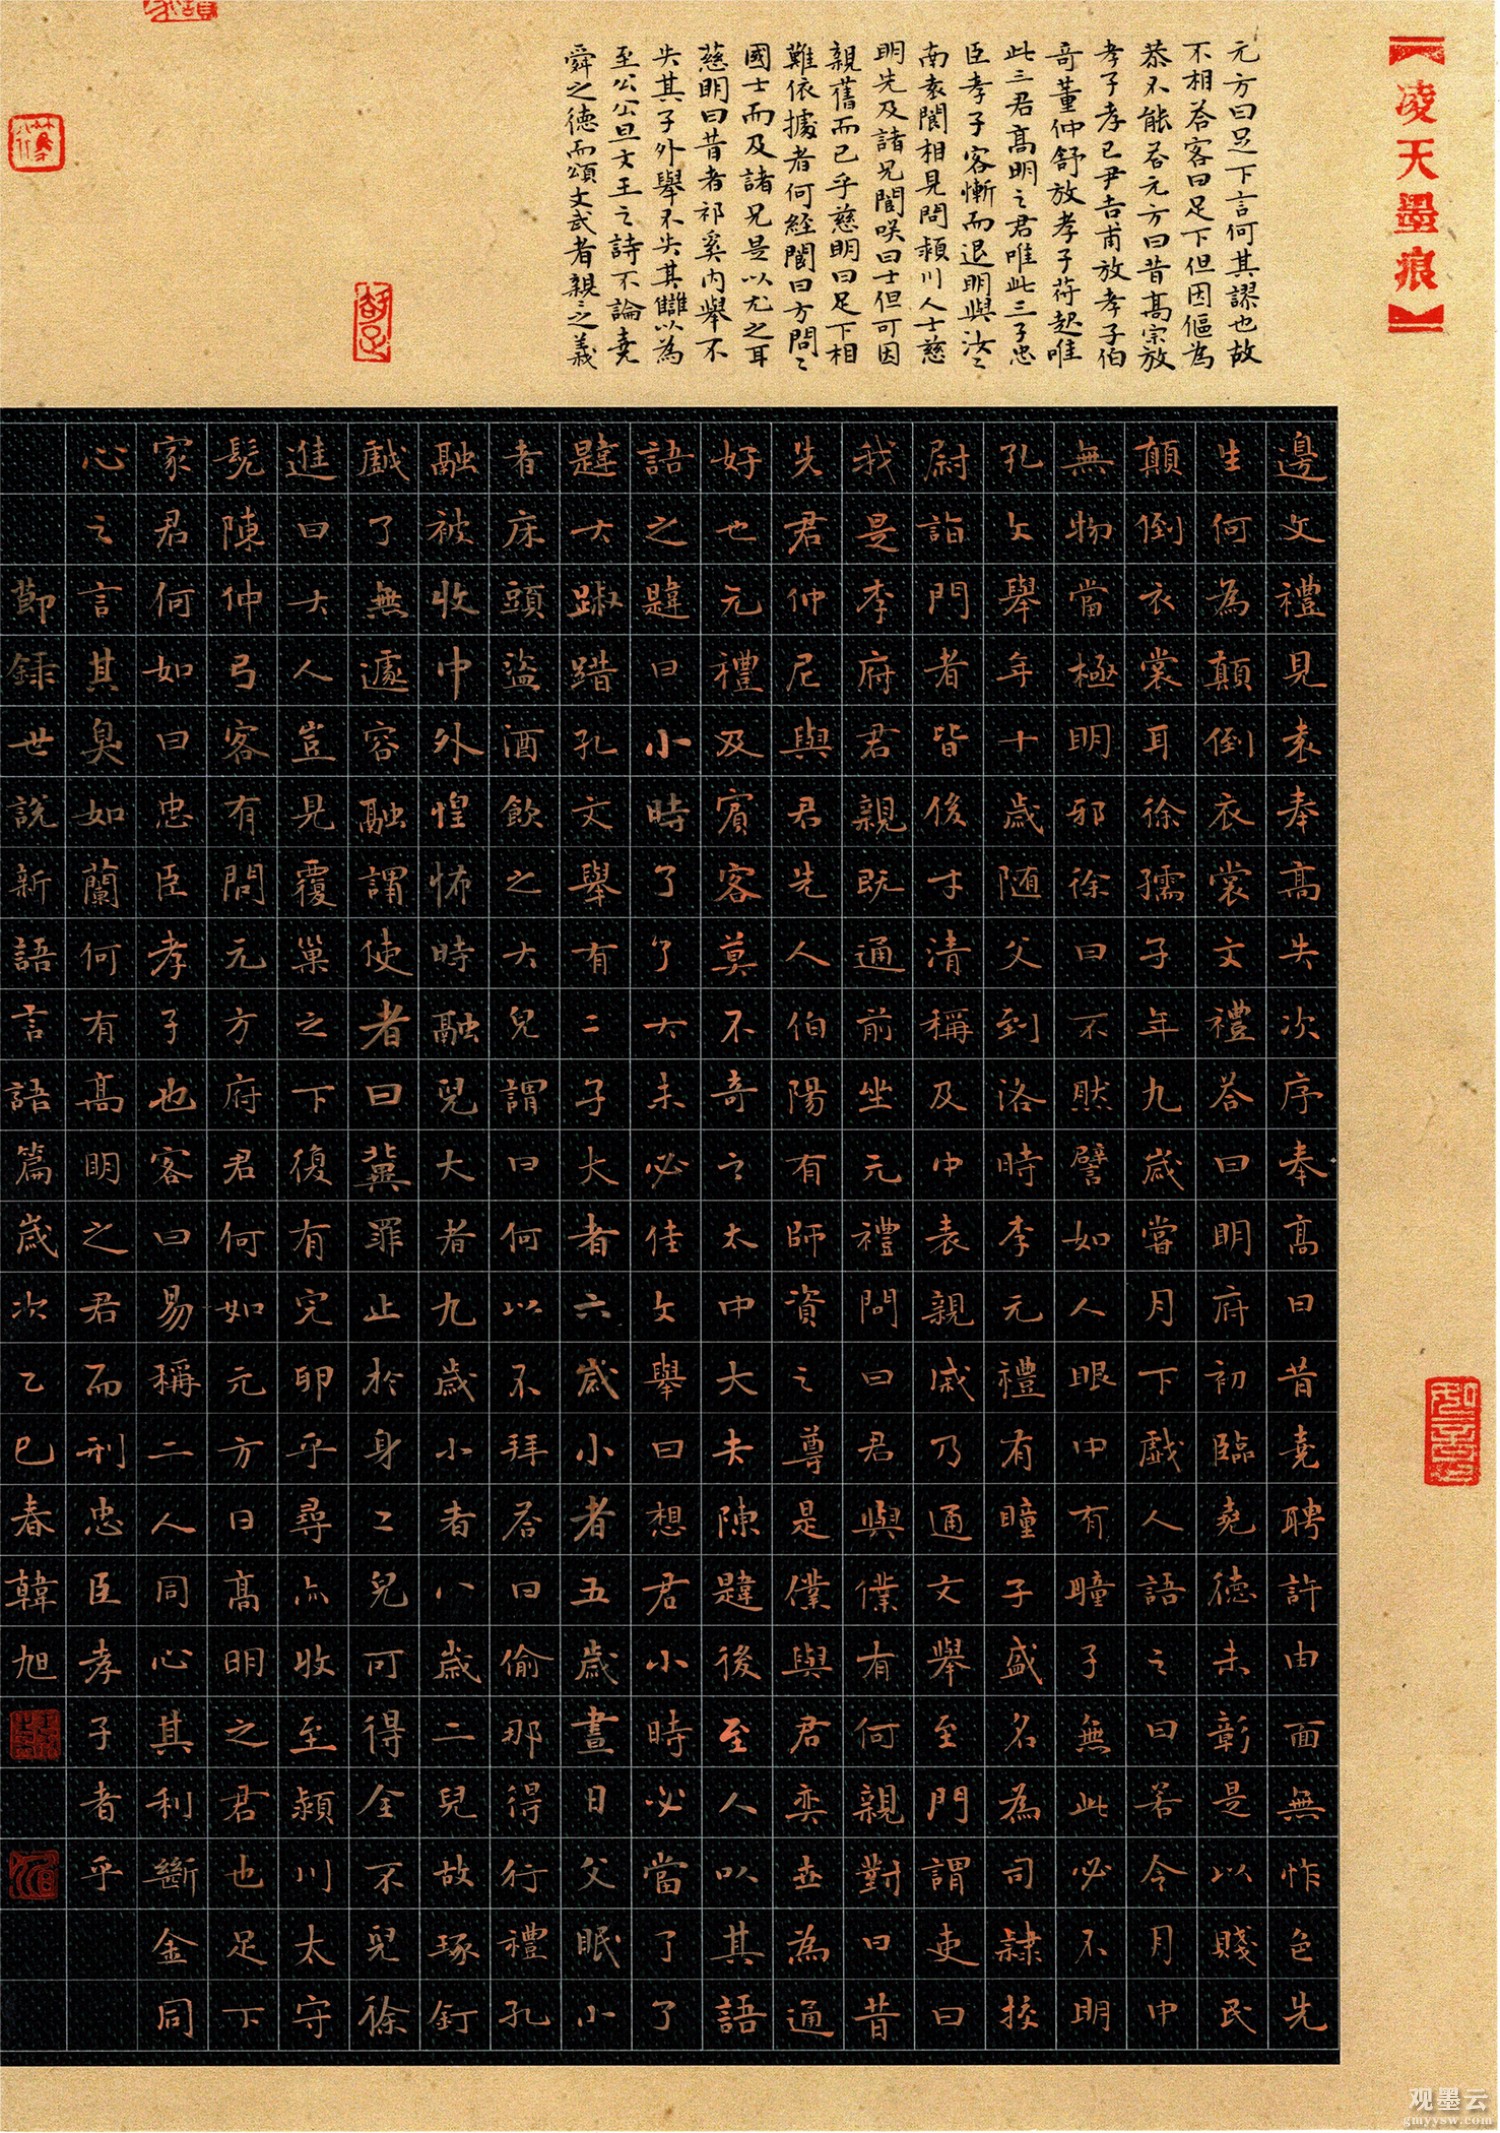 【凌天墨痕】
元方曰足下言何其謬也故
不相荅客曰足下但因傴為
恭不能荅元方曰昔高宗放
孝子孝已尹吉甫放孝子伯
奇董仲舒放孝子苻起唯
此三君高明之君唯此三子忠
臣孝子客慚而退明與汝〻
南袁閬相見問潁川人士慈
明先及諸兄閬咲曰士但可因
親舊而已乎慈明曰足下相
難依據者何經閬曰方問〻
國士而及諸兄是以尤之耳
慈明曰昔者祁奚內舉不
失其子外舉不失其讎以為
至公公旦文王之詩不論堯
舜之德而頌文武者親〻之義
邊文禮見袁奉高失次序奉高曰昔堯聘許由面無怍色先
生何為顛倒衣裳文禮荅曰明府初臨堯德未彰是以賤民
顛倒衣裳耳徐孺子年九歲嘗月下戲人語之曰若令月中
無物當極明邪徐曰不然譬如人眼中有瞳子無此必不明
孔文舉年十歲随父到洛時李元禮有瞳子盛名為司隸挍
尉詣門者皆後才清稱及中表親戚乃通文舉至門謂吏曰
我是李府君親既通前坐元禮問曰君與僕有何親對曰昔
失君仲尼與君先人伯陽有師資之尊是僕與君奕世為通
好也元禮及賓客莫不奇之太中大夫陳韙後至人以其語
語之韙曰小時了了大未必佳文舉曰想君小時必當了了
韙大踧踖孔文舉有二子大者六歲小者五歲晝日父眠小
者床頭盜酒飲之大兒謂曰何以不拜荅曰偷那得行禮孔
融被收中外惶怖時融兒大者九歲小者八歲二兒故琢釘
戲了無遽容融謂使者曰冀罪止於身二兒可得全不兒徐
進曰大人豈見覆巢之下復有完卵乎尋亦收至潁川太守
髡陳仲弓客有問元方府君何如元方曰高明之君也足下
家君何如曰忠臣孝子也客曰易稱二人同心其利斷金同
心之言其臭如蘭何有高明之君而刑忠臣孝子者乎
節錄世說新語言語篇歲次乙巳春韓旭
观墨云
gmyysw.com